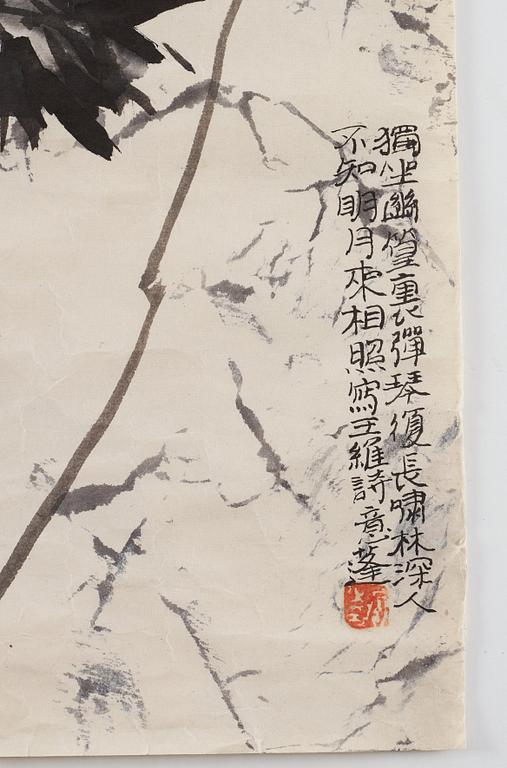 獨坐幽篁裏彈琴復長嘯林深人
不知明月來相照寫王維詩意蓬